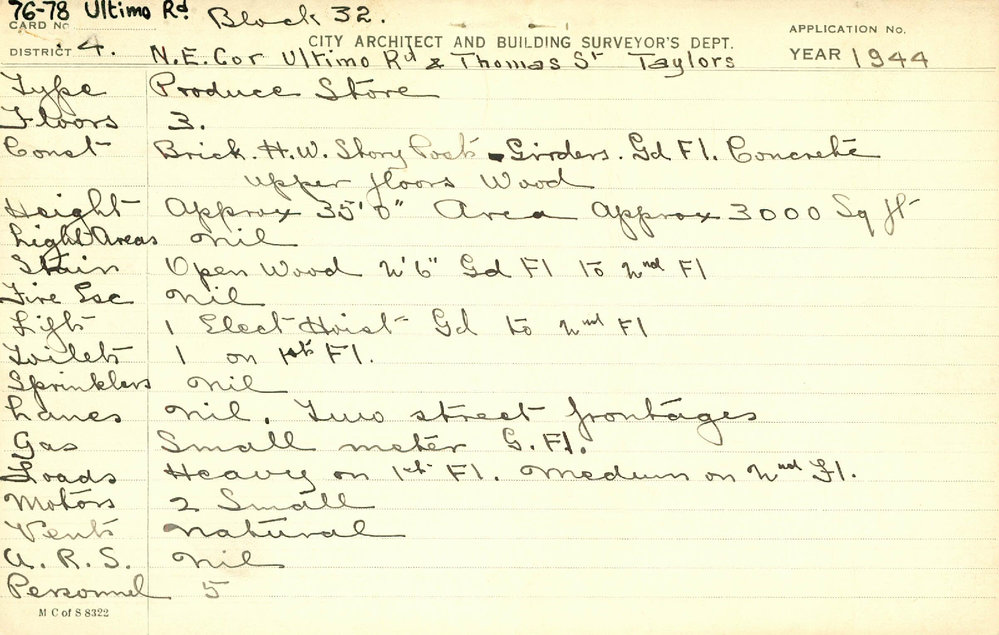 76-78 Ultimo Rd Block 32.
CARD No. APPLICATION No.
CITY ARCHITECT AND BUILDING SURVEYOR'S DEPT.
DISTRICT 4. N.E. Cor Ultimo Rd & Thomas St Taylors YEAR 1944
Type Produce Store
Floors 3.
Const Brick. H.W. Story Post - Girders. Gd Fl. Concrete
upper floors Wood
Height Approx 35'0" Area Approx 3000 Sq ft
Light Areas Nil
Stair Open Wood 2'6" Gd Fl to 2nd Fl
Fire Esc Nil
Lifts 1 Elect Hoist Gd to 2nd Fl
Toilets 1 on 1st Fl.
Sprinklers Nil
Lanes Nil. Two street frontages
Gas Small meter G. Fl.
Loads Heavy on 1st Fl. Medium on 2nd Fl.
Motors 2 Small
Vents Natural
A. R. S. Nil
Personnel 5
M C of S 8322